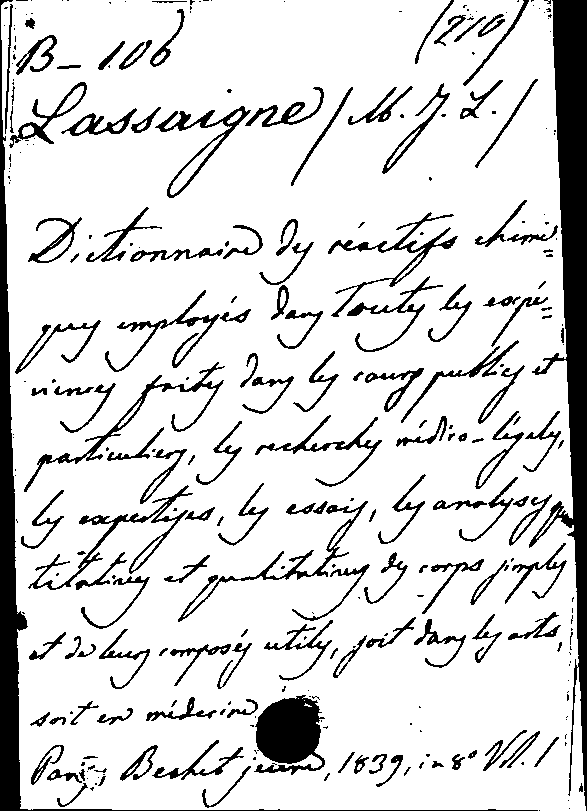 B-106 (210)
Lassaigne / M. J. L. /
Dictionnaire des réactifs chimi=
ques employés dans toutes les expé=
riences faites dans les cours publics et
particuliers, les recherches médico-légales,
les expertises, les essais, les analyses quan
titatives et qualitatives des corps simples
et de leurs composés utiles, soit dans les arts,
soit en médecine
Paris, Bechet jeune, 1839, in 8° Vol. 1